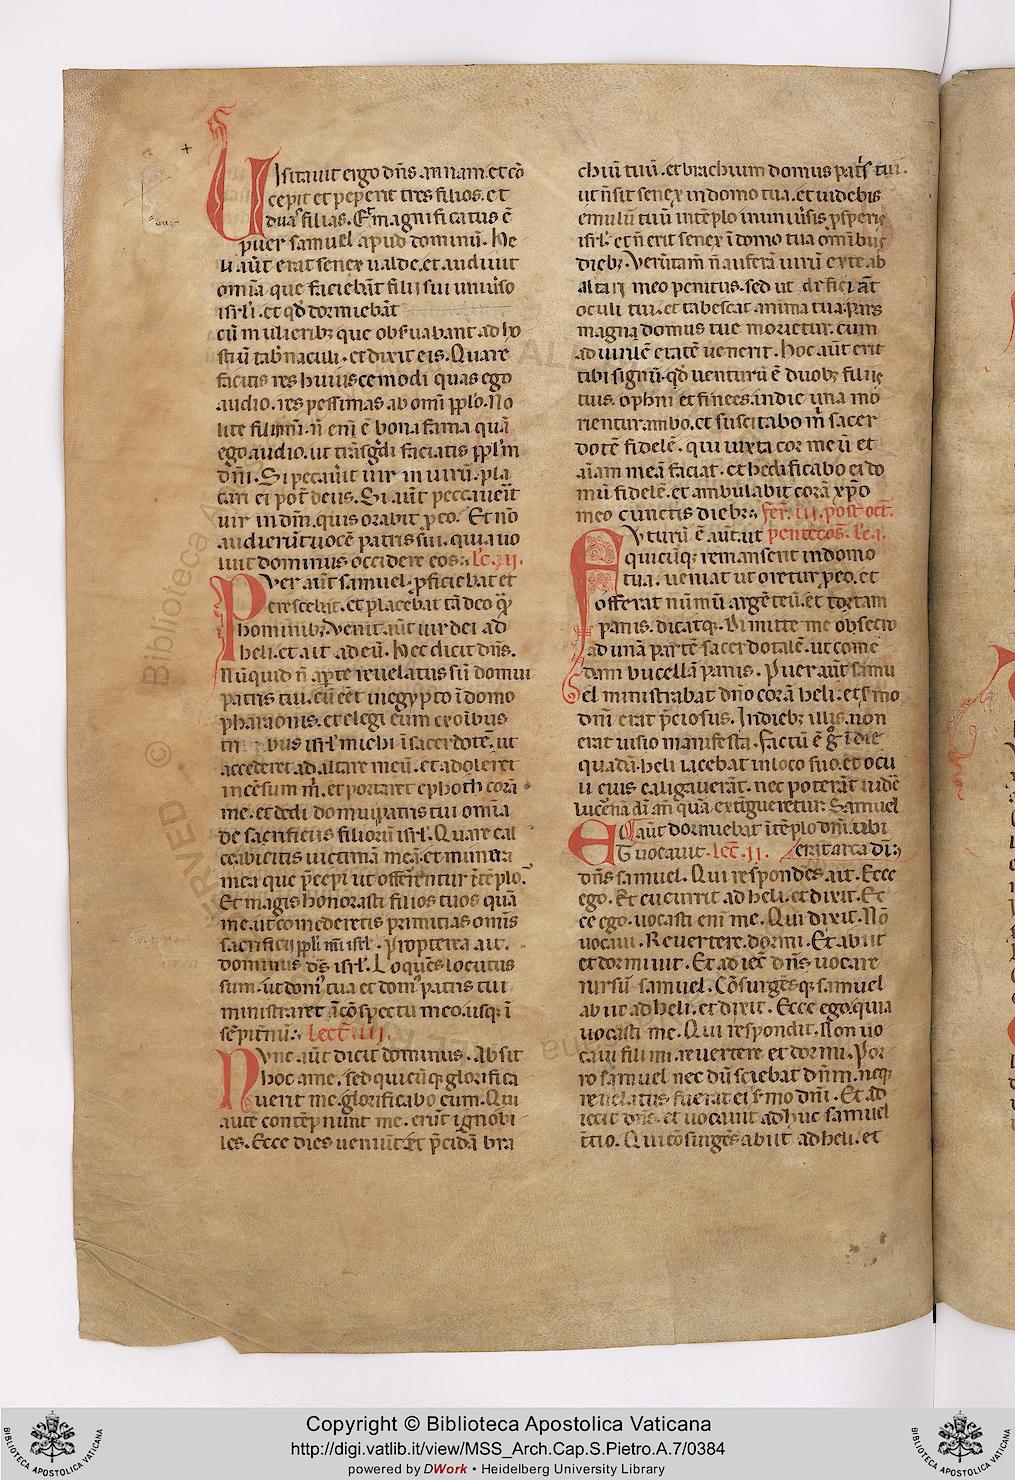 Uisitauit ergo dñs annam. et cō
cepit et peperit tres filios. et
duas filias. Et magnificatus ē
puer samuel apud dominū. He
li aūt erat senex ualde. et audiuit
omīa que faciebāt filii sui uniuso
isrl'i. et qd dormiebāt
cū mulieribz que obsuabant ad ho
stiū tab'naculi. et dixit eis. Quare
facitis res huiuscemodi quas ego
audio. res pessimas ab omī pplo. No
lite filii mi. n̄ eni ē bona fama quā
ego audio. ut trāsgdi faciatis ppl'm
dñi. Si peccauit uir in uirū. pla
cari ei pot deus. Si aūt peccauerit
uir in dm̄. quis orabit p eo. Et nō
audierūt uocē patris sui. quia uo
luit dominus occidere eos. Lc. ii.
Puer aūt samuel pficiebat et
crescebat. et placebat tā deo q̄
hominibz. Venit aūt uir dei ad
heli. et ait ad eū. Hec dicit dñs.
Nūquid n̄ apte reuelatus sū domui
patris tui. cū eēt in egypto ī domo
pharaonis. et elegi eum ex oībus
tribus isrl' michi ī sacerdotē. ut
accederet ad altare meū. et adoleret
incēsum m'. et portaret ephoth corā
me. et dedi domui patris tui omīa
de sacrificiis filiorū isrl'. Quare cal
ce abicitis uictimā meā. et munera
mea que p̄cepi ut offerentur ī tēplo.
Et magis honorasti filios tuos quā
me. ut comederetis primitias omīs
sacrificii ppl'i mi isrl'. Propterea ait
dominus ds̄ isrl'. Loquēs locutus
sum. ut dom' tua et dom' patris tui
ministraret ī cōspectu meo. usq; ī
sēpit'nū. Lect. iii.
Nunc aūt dicit dominus. Absit
hoc a me. sed quicūq; glorifica
uerit me. glorificabo eum. Qui
autē contēpnunt me. erūt ignobi
les. Ecce dies ueniūt. et p̄cidā bra
chiū tuū. et brachium domus pat's tui.
ut n̄ sit senex in domo tua. et uidebis
emulū tuū in tēplo in uniu'sis psperis
isrl'. et n̄ erit senex ī domo tua omībus
diebz. Verūtam̄ n̄ auferā uirū ex te ab
altari meo penitus. sed ut deficiāt
oculi tui. et tabescat anima tua. pars
magna domus tue morietur. cum
ad uirilē etatē uenerit. Hoc aūt erit
tibi signū. qd uenturū ē duobz filiis
tuis. ophni et finees. in die una mo
rientur ambo. et suscitabo m' sacer
dotē fidelē. qui iuxta cor meū et
aīam meā faciat. et hedificabo ei do
mū fidelē. et ambulabit corā xp̄o
meo cunctis diebz. fer. iii. post oct.
Futurū ē aūt. ut pentecos. Lc. i.
quicūq; remanserit in domo
tua. ueniat ut oretur p eo. et
offerat nūmū argēteū. et tortam
panis. dicatq;. Dimitte me obsecro
ad unā partē sacerdotalē. ut come
dam bucellā panis. Puer aūt samu
el ministrabat dño corā heli. et s'mo
dñi erat p̄ciosus. In diebz illis. non
erat uisio manifesta. Factū ē g° ī die
quadā. heli iacebat in loco suo. et ocu
li eius caligauerāt. nec poterāt uidē
lucernā dī an̄ quā extīgueretur. Samuel
aūt dormiebat ī tēplo dñi. ubi
Et uocauit. Lect. ii. erat arca dī.
dñs samuel. Qui respondēs ait. Ecce
ego. Et cucurrit ad heli. et dixit. Ec
ce ego. uocasti eni me. Qui dixit. Nō
uocaui. Reuertere. dormi. Et abiit
et dormiuit. Et adiec' dñs uocare
rursū samuel. Cōsurgēsq; samuel
abiit ad heli. et dixit. Ecce ego. quia
uocasti me. Qui respondit. Non uo
caui fili mi. reuertere et dormi. Por
ro samuel nec dū sciebat dñm. neq;
reuelatus fuerat ei s'mo dñi. Et ad
iecit dñs. et uocauit adhuc samuel
t'tio. Qui cōsurgēs abiit ad heli. et
Copyright © Biblioteca Apostolica Vaticana
http://digi.vatlib.it/view/MSS_Arch.Cap.S.Pietro.A.7/0384
powered by DWork • Heidelberg University Library
BIBLIOTECA APOSTOLICA VATICANA
BIBLIOTECA APOSTOLICA VATICANA